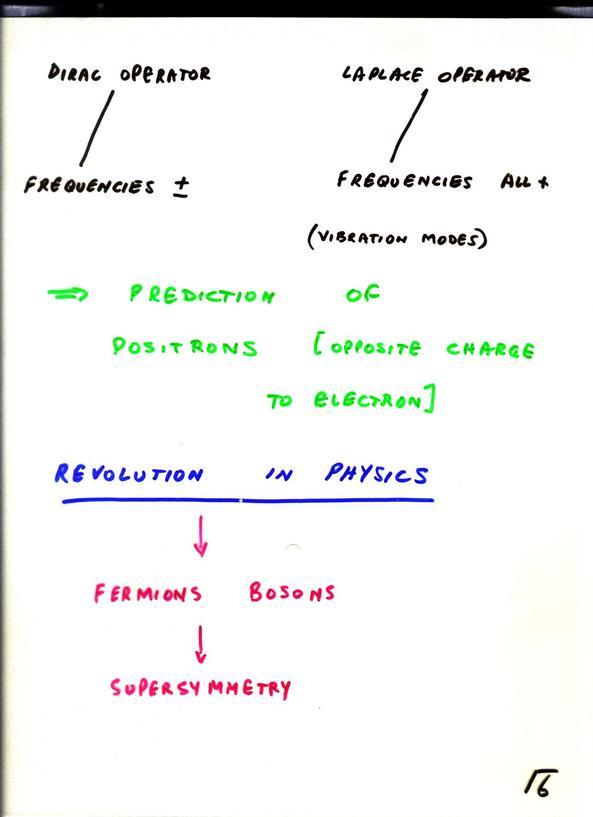 DIRAC OPERATOR LAPLACE OPERATOR
FREQUENCIES ± FREQUENCIES ALL +
(VIBRATION MODES)
⇒ PREDICTION OF
POSITRONS [OPPOSITE CHARGE
TO ELECTRON]
REVOLUTION IN PHYSICS
↓
FERMIONS BOSONS
↓
SUPERSYMMETRY
16